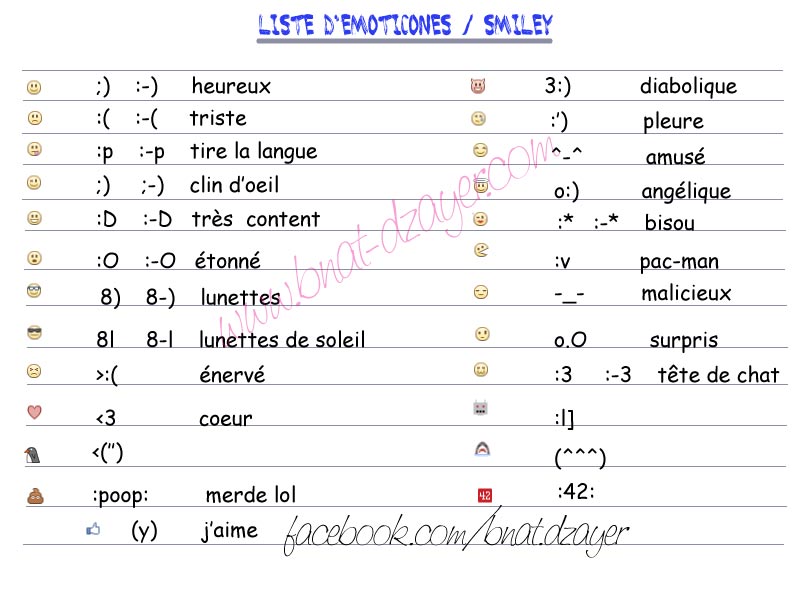 LISTE D'EMOTICONES / SMILEY
;) :-) heureux
:( :-( triste
:p :-p tire la langue
;) ;-) clin d'oeil
:D :-D très content
:O :-O étonné
8) 8-) lunettes
8l 8-l lunettes de soleil
>:( énervé
<3 coeur
<(")
:poop: merde lol
(y) j'aime
3:) diabolique
:') pleure
^-^ amusé
o:) angélique
:* :-* bisou
:v pac-man
-_- malicieux
o.O surpris
:3 :-3 tête de chat
:l]
(^^^)
42 :42:
www.bnat-dzayer.com
facebook.com/bnat.dzayer